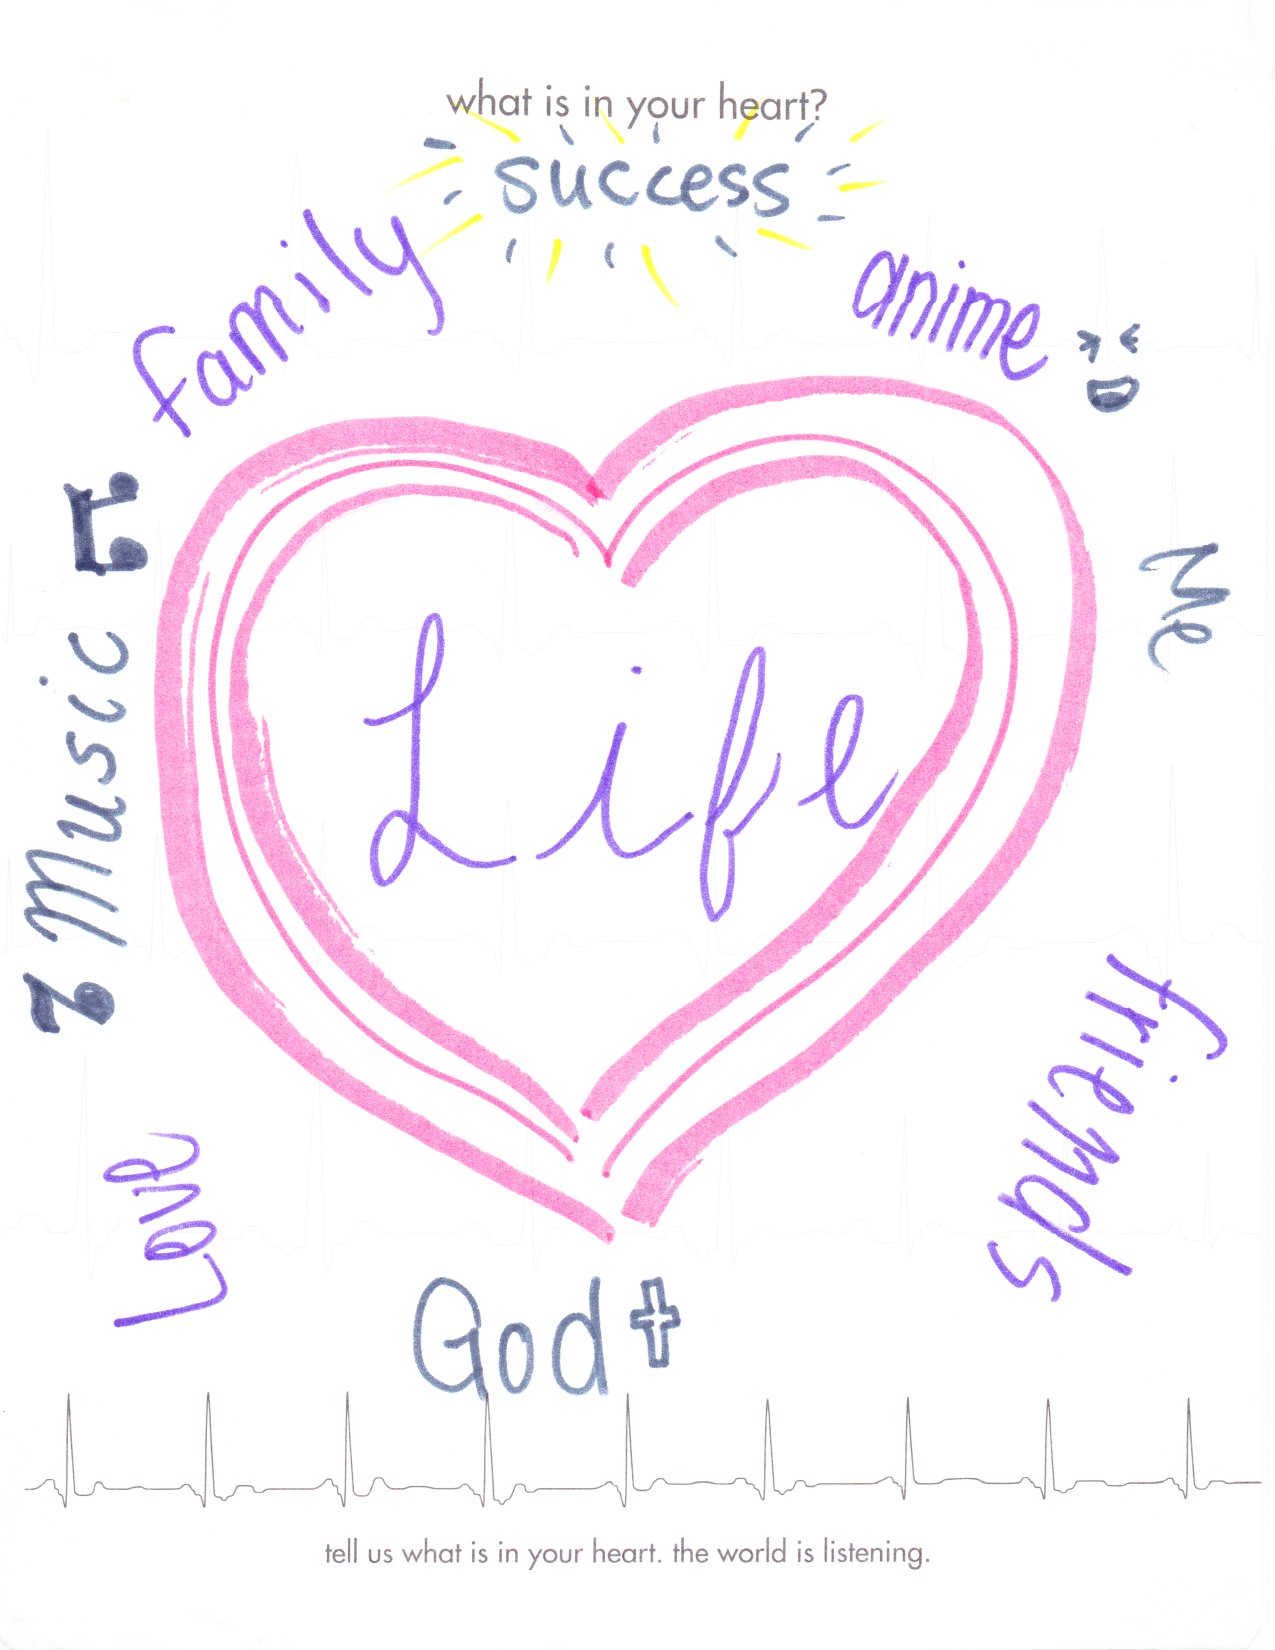 what is in your heart?
success
family
anime
Music
Me
Life
friends
Love
God
tell us what is in your heart. the world is listening.